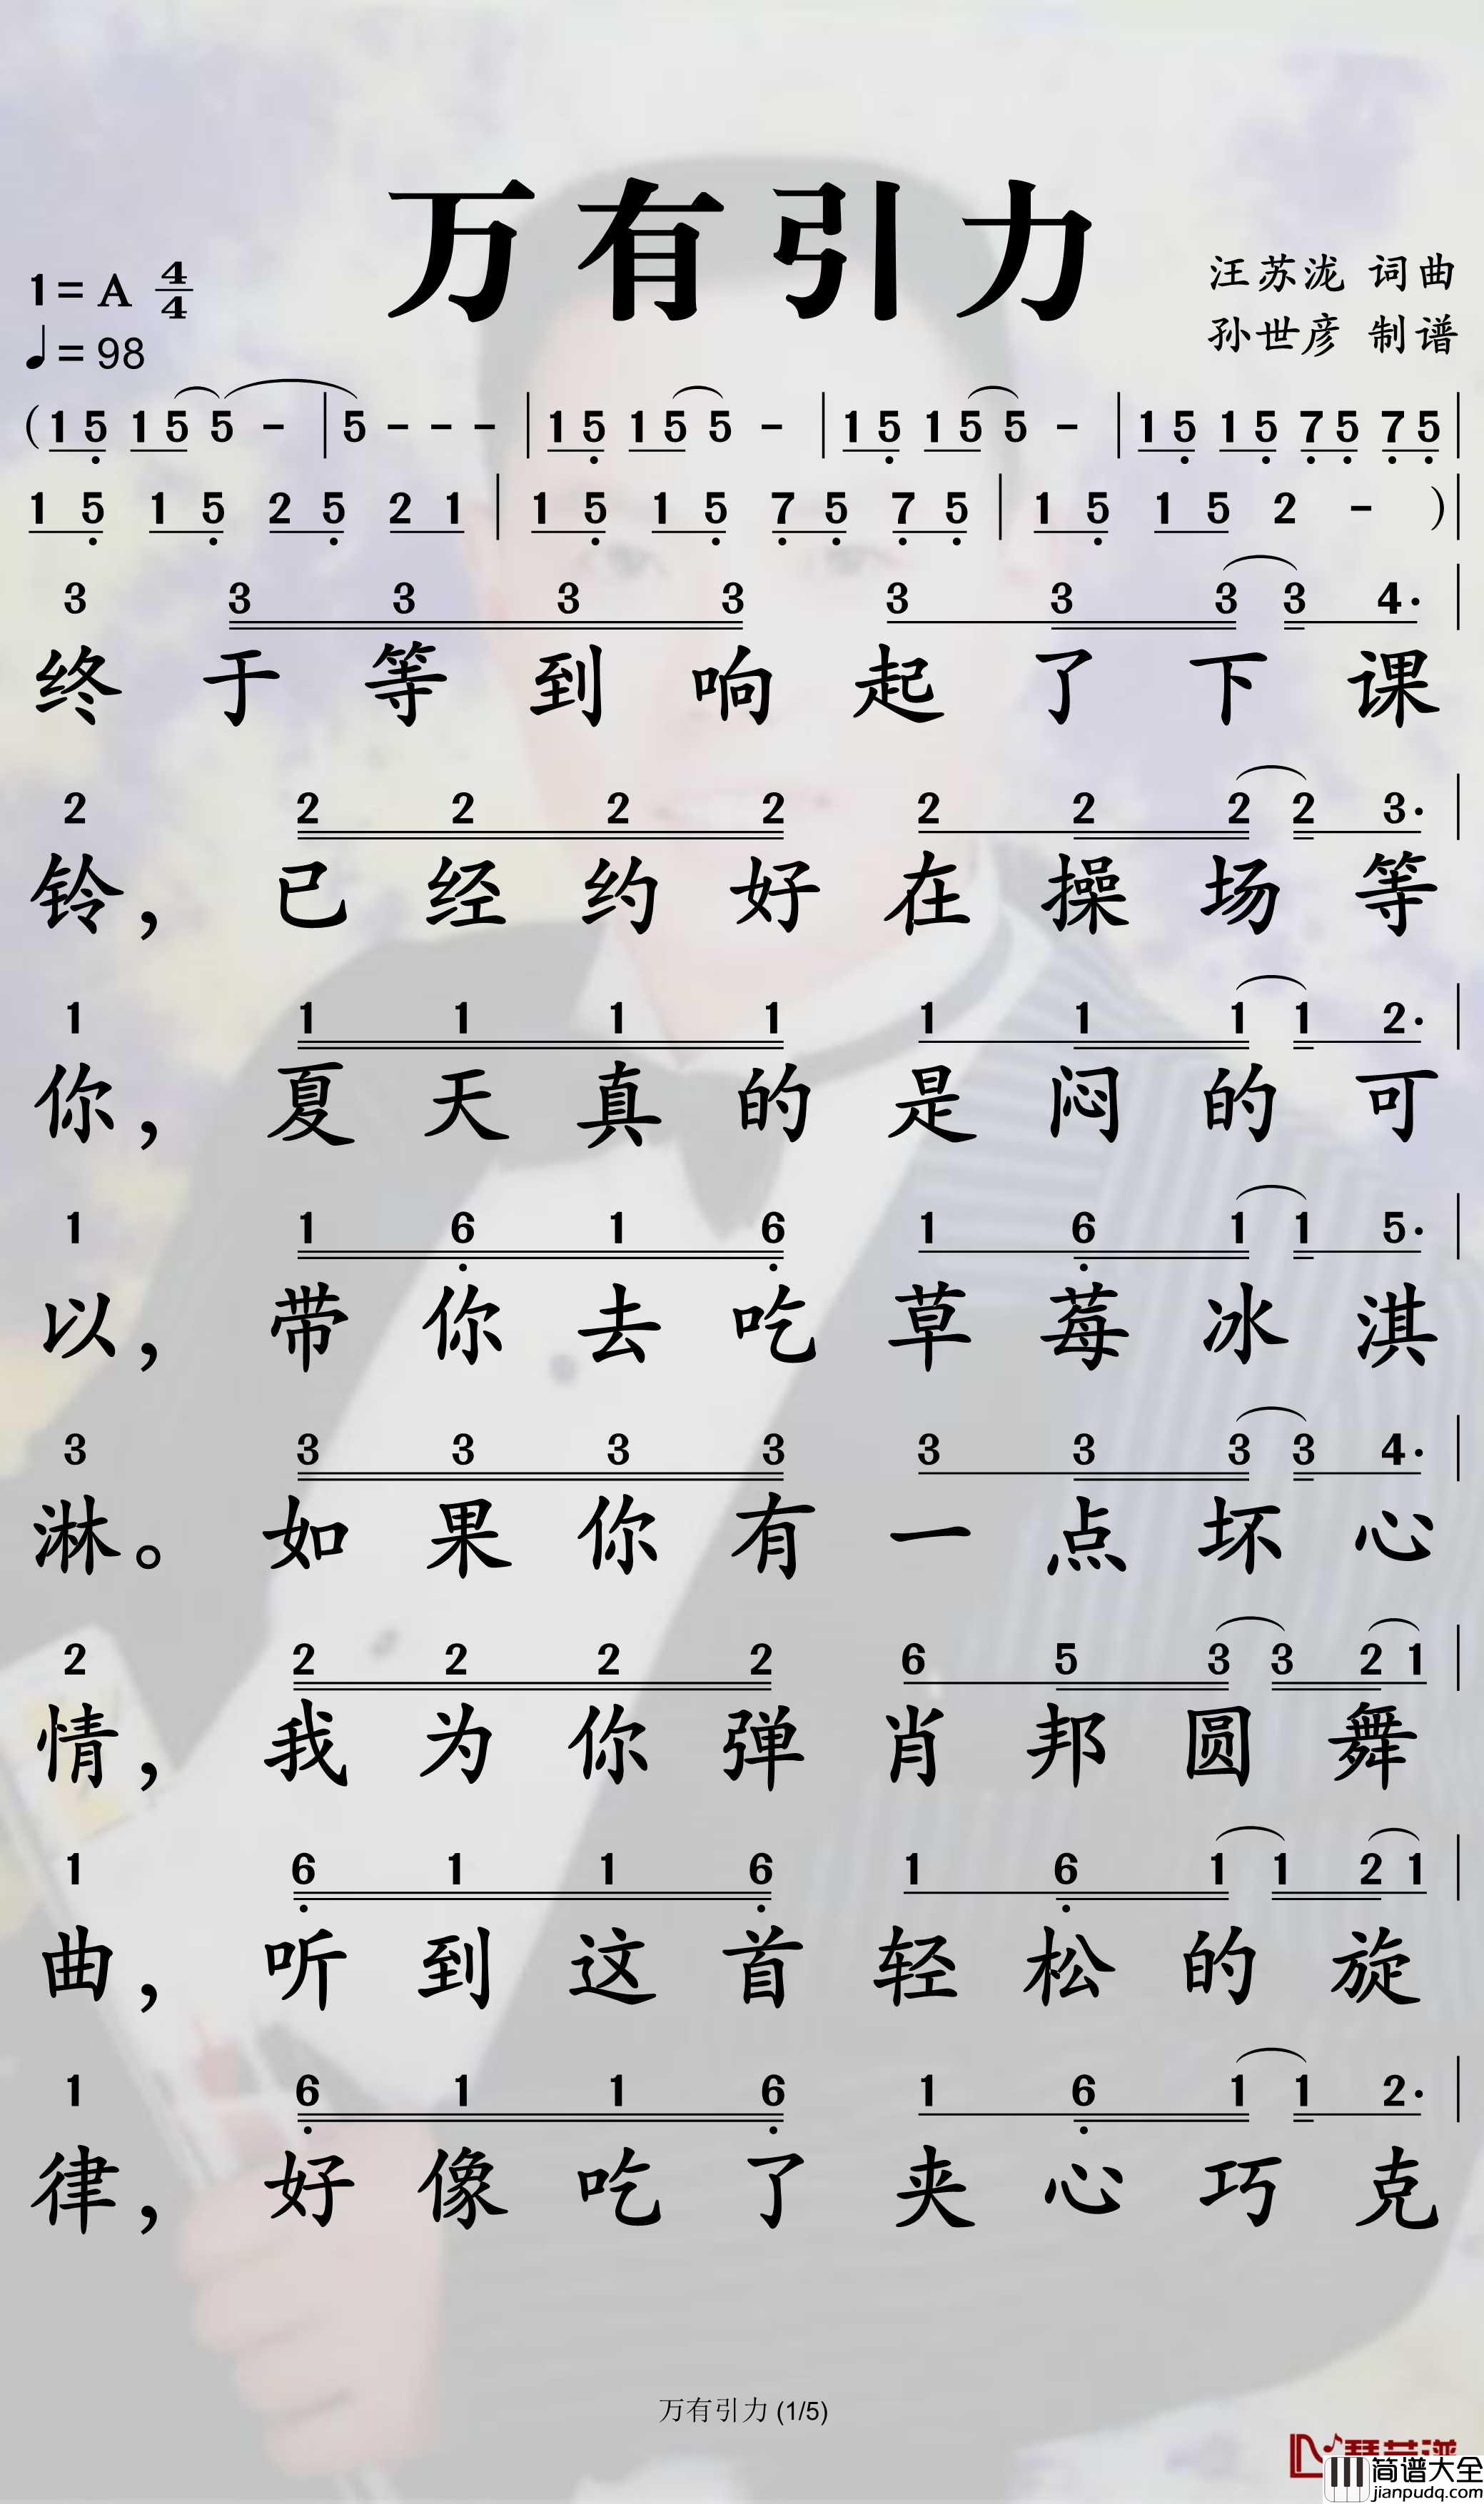 万有引力
1=A 4/4
♩=98
汪苏泷 词曲
孙世彦 制谱
(1 5 1 5 5 - | 5 - - - | 1 5 1 5 5 - | 1 5 1 5 5 - | 1 5 1 5 7 5 7 5 |
1 5 1 5 2 5 2 1 | 1 5 1 5 7 5 7 5 | 1 5 1 5 2 - ) |
3 3 3 3 3 3 3 3 3 4· |
终于等到响起了下课
2 2 2 2 2 2 2 2 2 3· |
铃，已经约好在操场等
1 1 1 1 1 1 1 1 1 2· |
你，夏天真的是闷的可
1 1 6 1 6 1 6 1 1 5· |
以，带你去吃草莓冰淇
3 3 3 3 3 3 3 3 3 4· |
淋。如果你有一点坏心
2 2 2 2 2 6 5 3 3 2 1 |
情，我为你弹肖邦圆舞
1 6 1 1 6 1 6 1 1 2 1 |
曲，听到这首轻松的旋
1 6 1 1 6 1 6 1 1 2· |
律，好像吃了夹心巧克
万有引力 (1/5)
简谱大全
jianpudq.com